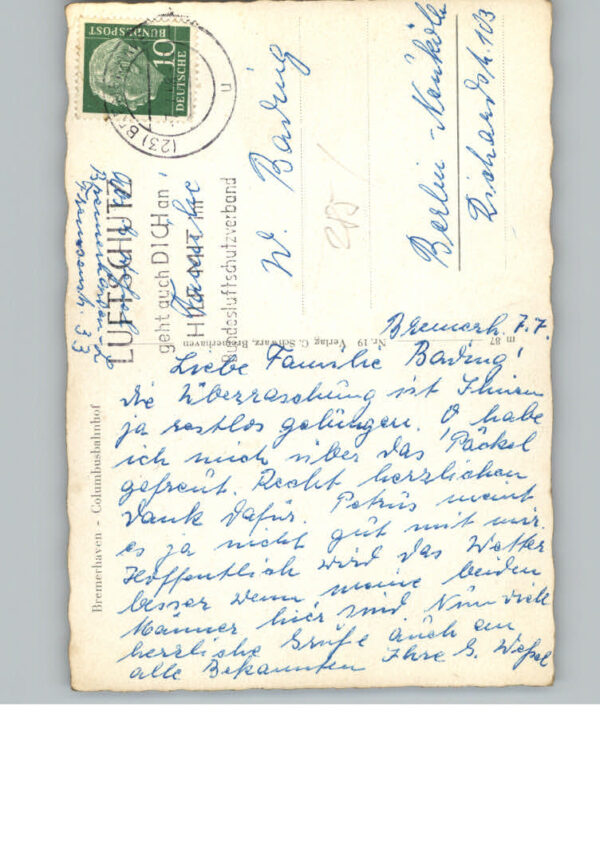 Bremerh. 7.7.
Liebe Familie Bading!
die Überraschung ist Ihnen
ja restlos gelungen. O habe
ich mich über das Päckel
gefreut. Recht herzlichen
Dank dafür. Petrus meint
es ja nicht gut mit mir.
Hoffentlich wird das Wetter
besser wenn meine beiden
Männer hier sind. Nun viele
herzliche Grüße auch an
alle Bekannten Ihre G.
Familie
W. Bading
Berlin-Neukölln
Richardstr. 103
Bremerhaven
33
DEUTSCHE
BUNDESPOST
10
(23)
u
LUFTSCHUTZ
geht auch DICH an!
HILF MIT im
Bundesluftschutzverband
Bremerhaven - Columbusbahnhof
m 87
Nr. 19 Verlag C. Schwarz, Bremerhaven